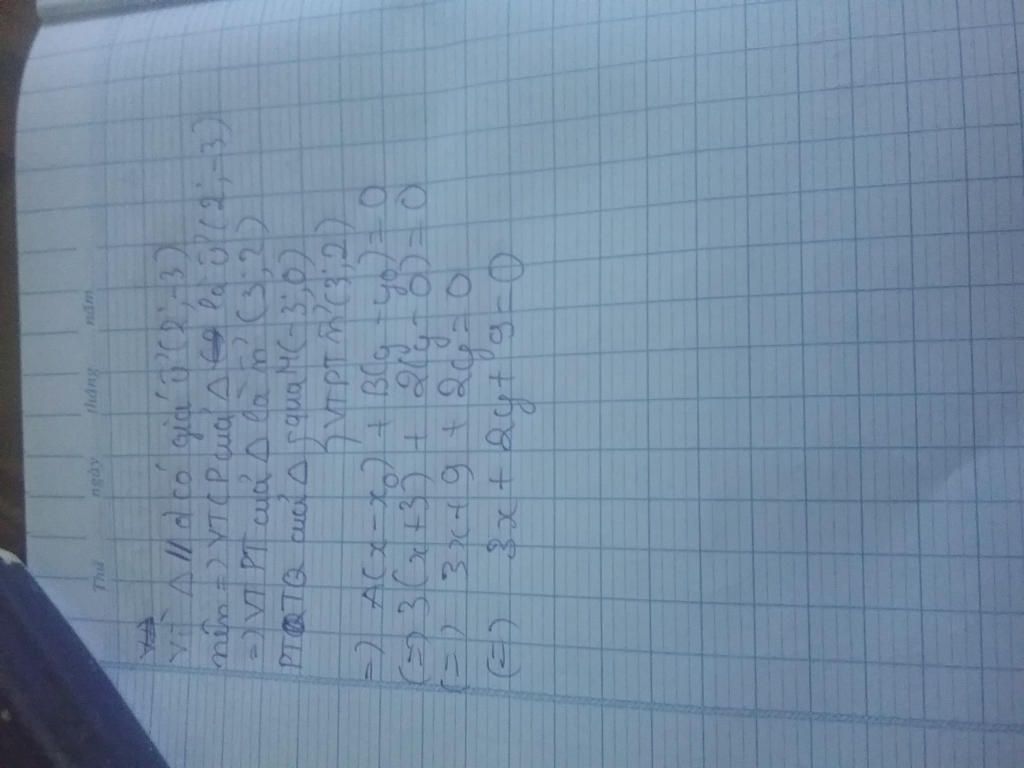 Thứ ngày tháng năm
Vì Δ // d có giá ū(2;-3)
nên => VTCP của Δ là ū(2;-3)
=> VTPT của Δ là n (3;2)
PTTQ của Δ { qua M(-3;0)
VTPT n (3;2)
=) A(x-x₀) + B(y-y₀) = 0
(=) 3(x+3) + 2(y-0) = 0
(=) 3x+9 + 2y = 0
(=) 3x + 2y + 9 = 0